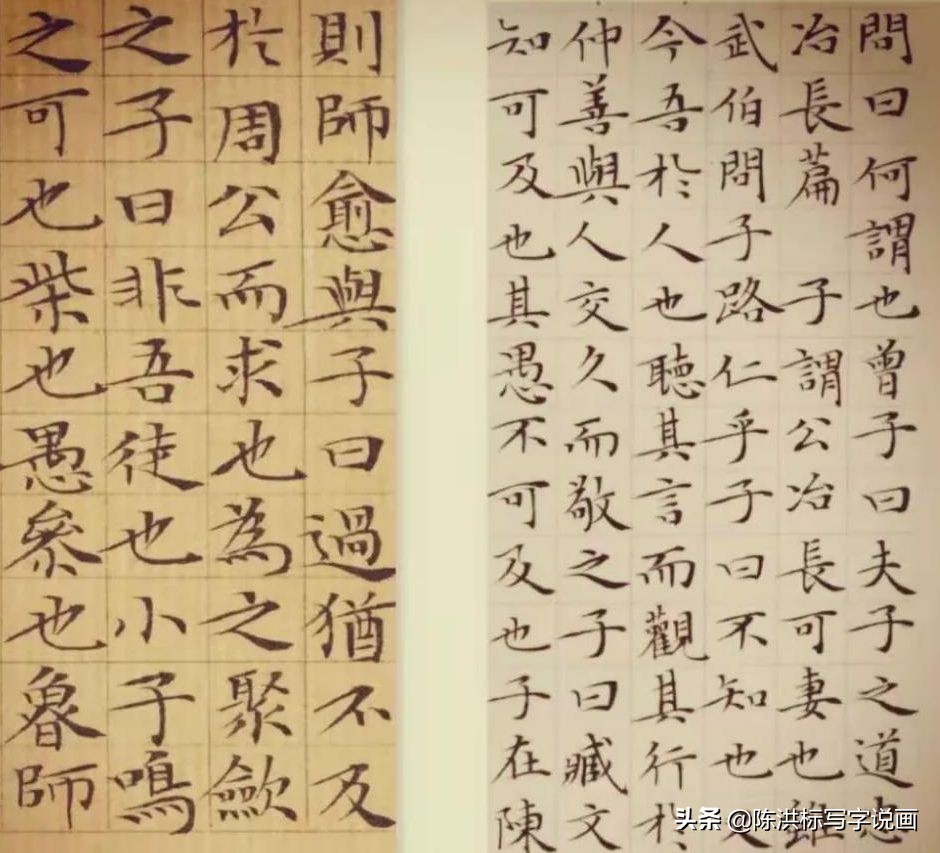 問曰何謂也曾子曰夫子之道忠
冶長篇 子謂公冶長可妻也雖
武伯問子路仁乎子曰不知也又
今吾於人也聽其言而觀其行於
仲善與人交久而敬之子曰臧文
知可及也其愚不可及也子在陳
則師愈與子曰過猶不及
於周公而求也為之聚歛
之子曰非吾徒也小子鳴
之可也柴也愚參也魯師
头条 @陈洪标写字说画